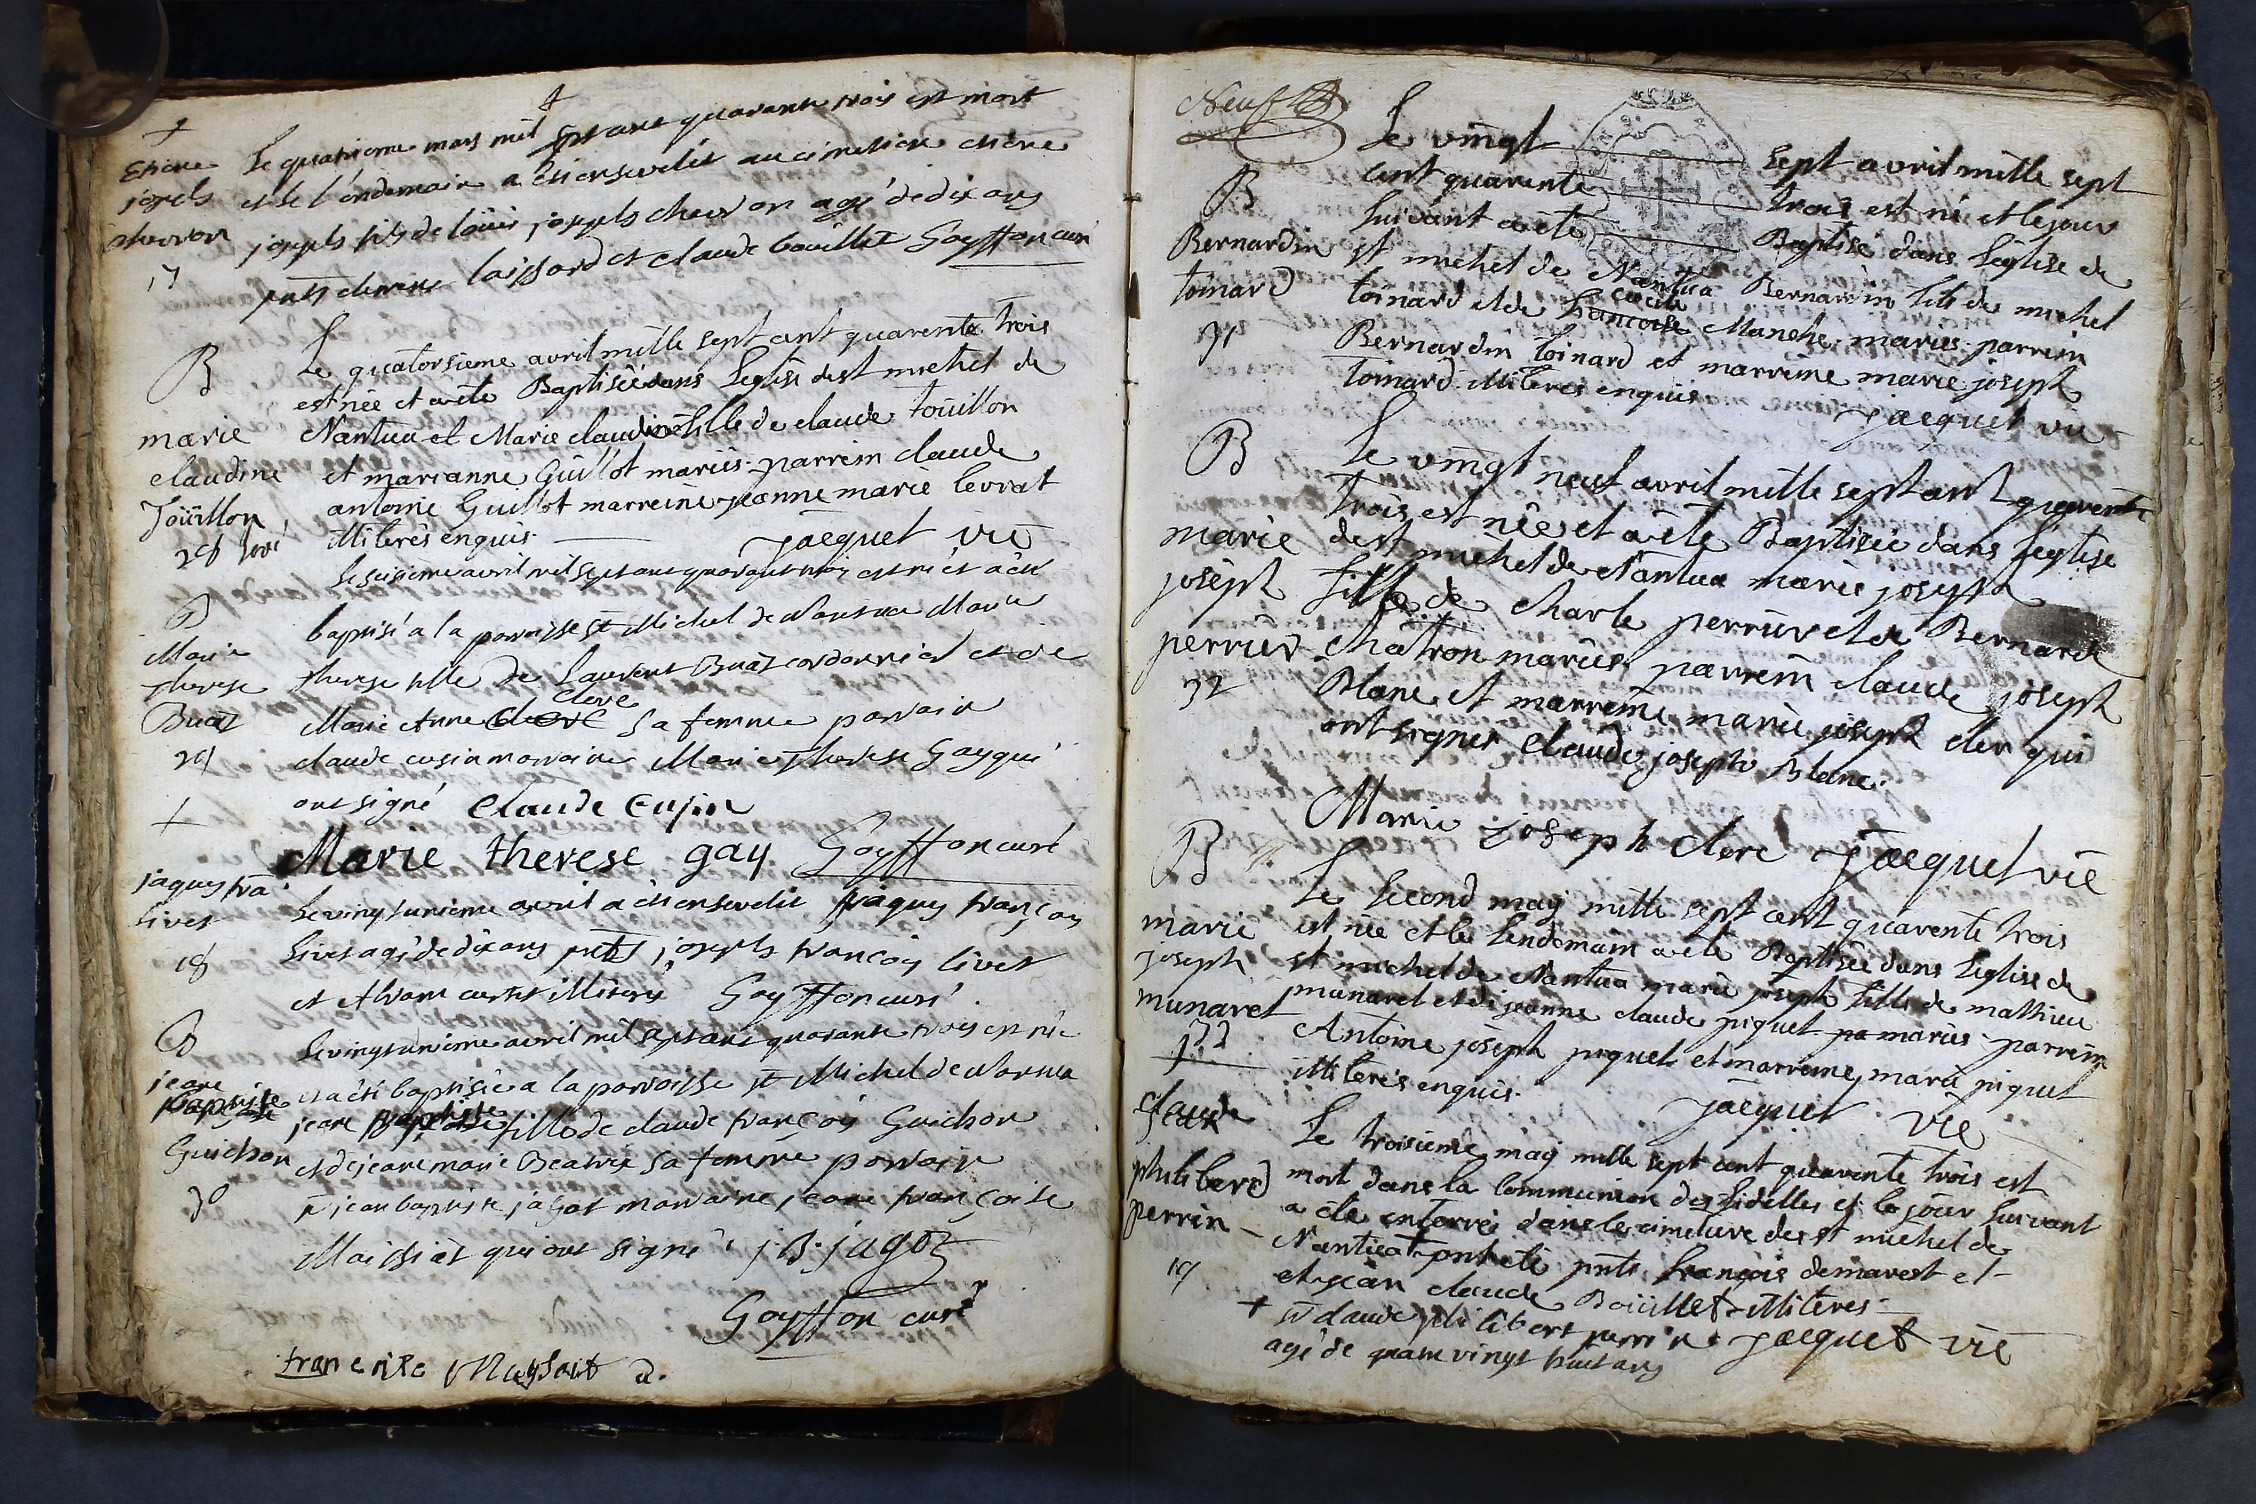 +
Etiene
joseph
chevron
17
Le quatrieme mars mil sept cent quarante trois est mort
et le l'endemain a été ensevelit au cimetiere etiene
joseph fils de loüis joseph chevron agé de dix ans
pnts claude bouillet Goyffon curé
B
marie
claudine
Toüillon
28
Le quatorsieme avril mille sept cent quarente trois
est née et a été Baptisée dans Leglise de st michel de
Nantua et Marie claudine fille de claude toüillon
et marianne Guillot mariés parrein claude
antoine Guillot marreine jeanne marie levrat
illiterés enquis. Jacquet vic
B
Marie
therese
Buat
29
Le sesieme avril mil sept cent quarante trois est né et a été
baptisé a la paroisse st Michel de Nantua Marie
therese fille de Laurent Buat cordonnier et de
Marie Anne cleve sa femme parrain
claude cusin marraine Marie Therese Gay qui
ont signé Claude Cusin
Marie therese gay Goyffon curé
+
jaques fra
livet
18
Le vingt unieme avril a été ensevelit jaques françois
livet agé de dix ans pnts joseph françois livet
et illiterés Goyffon curé
B
jeane
baptiste
Guichon
30
Le vingt unieme avril mil sept cent quarante trois est née
et a été baptisée a la paroisse st Michel de Nantua
jeane baptiste fille de claude françois Guichon
et de jeane marie Beatrix sa femme parrain
sr jean baptiste jagot marraine jeane françoise
Maissiat qui ont signé j. B. jagot
Goyffon curé
Neuf
B
Bernardin
toinard
31
Le vingt sept avril mille sept
cent quarente trois est né et le jour
suivant a été Baptisé dans L'église de
st michel de Nantua Bernardin fils de michel
toinard et de françoise Manche mariés parrein
Bernardin toinard et marreine marie joseph
toinard illiterés enquis
Jacquet vic
B
marie
joseph
perrier
32
Le vingt neuf avril mille sept cent quarente
trois est née et a été Baptisée dans Leglise
de st michel de Nantua marie joseph
fille de charle perrier et de Bernarde
chatron mariés parrein claude joseph
Blanc et marreine marie joseph cler qui
ont signés Claude joseph Blanc
Marie joseph clerc Jacquet vic
B
marie
joseph
munaret
33
Le second may mille sept cent quarente trois
est née et le lendemain a été Baptisée dans Leglise de
st michel de Nantua marie joseph fille de mathieu
munaret et de jeanne claude piquet pa mariés parrein
Antoine joseph piquet et marreine marie piquet
illiterés enquis.
Jacquet vic
claude
philibert
perrin
19
Le troisieme may mille sept cent quarente trois est
mort dans la Communion des fidelles et le jour suivant
a été enterré dans le cimetiere de st michel de
Nantua + ont été pnts françois demarest et
et jean claude Boüillet illiteres
+ sr claude philibert perrin Jacquet vic
agé de quatre vingt huit ans